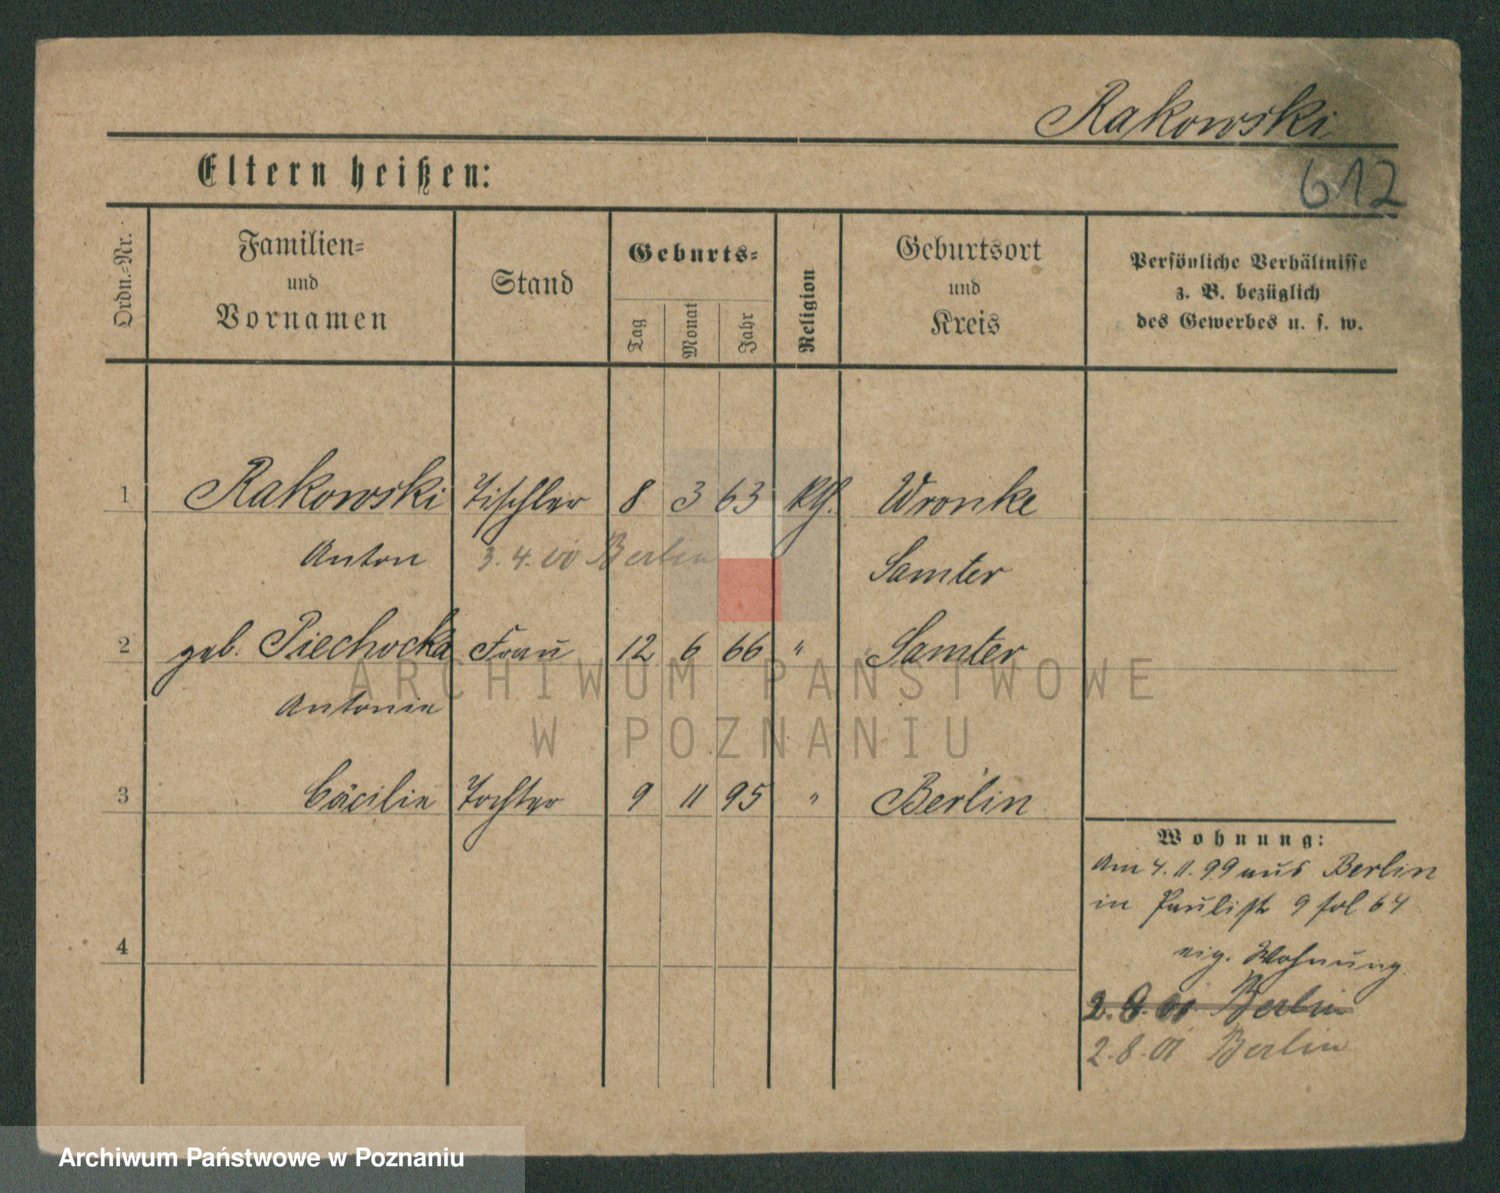 Rakowski
612
Eltern heißen:
Ordn.-Nr.
Familien-
und
Vornamen
Stand
Geburts-
Tag
Monat
Jahr
Religion
Geburtsort
und
Kreis
Persönliche Verhältnisse
z. B. bezüglich
des Gewerbes u. s. w.
1 Rakowski Tischler 8 3 63 kth. Wronke
Anton 3.4.00 Berlin Samter
2 geb. Piechocka Frau 12 6 66 " Samter
Antonie
3 Cäcilie Tochter 9 11 95 " Berlin
4
Wohnung:
Am 4.11.99 aus Berlin
in Paulistr 9 fol 64
eig. Wohnung
2.8.01 Berlin
2.8.01 Berlin
ARCHIWUM PAŃSTWOWE
W POZNANIU
Archiwum Państwowe w Poznaniu